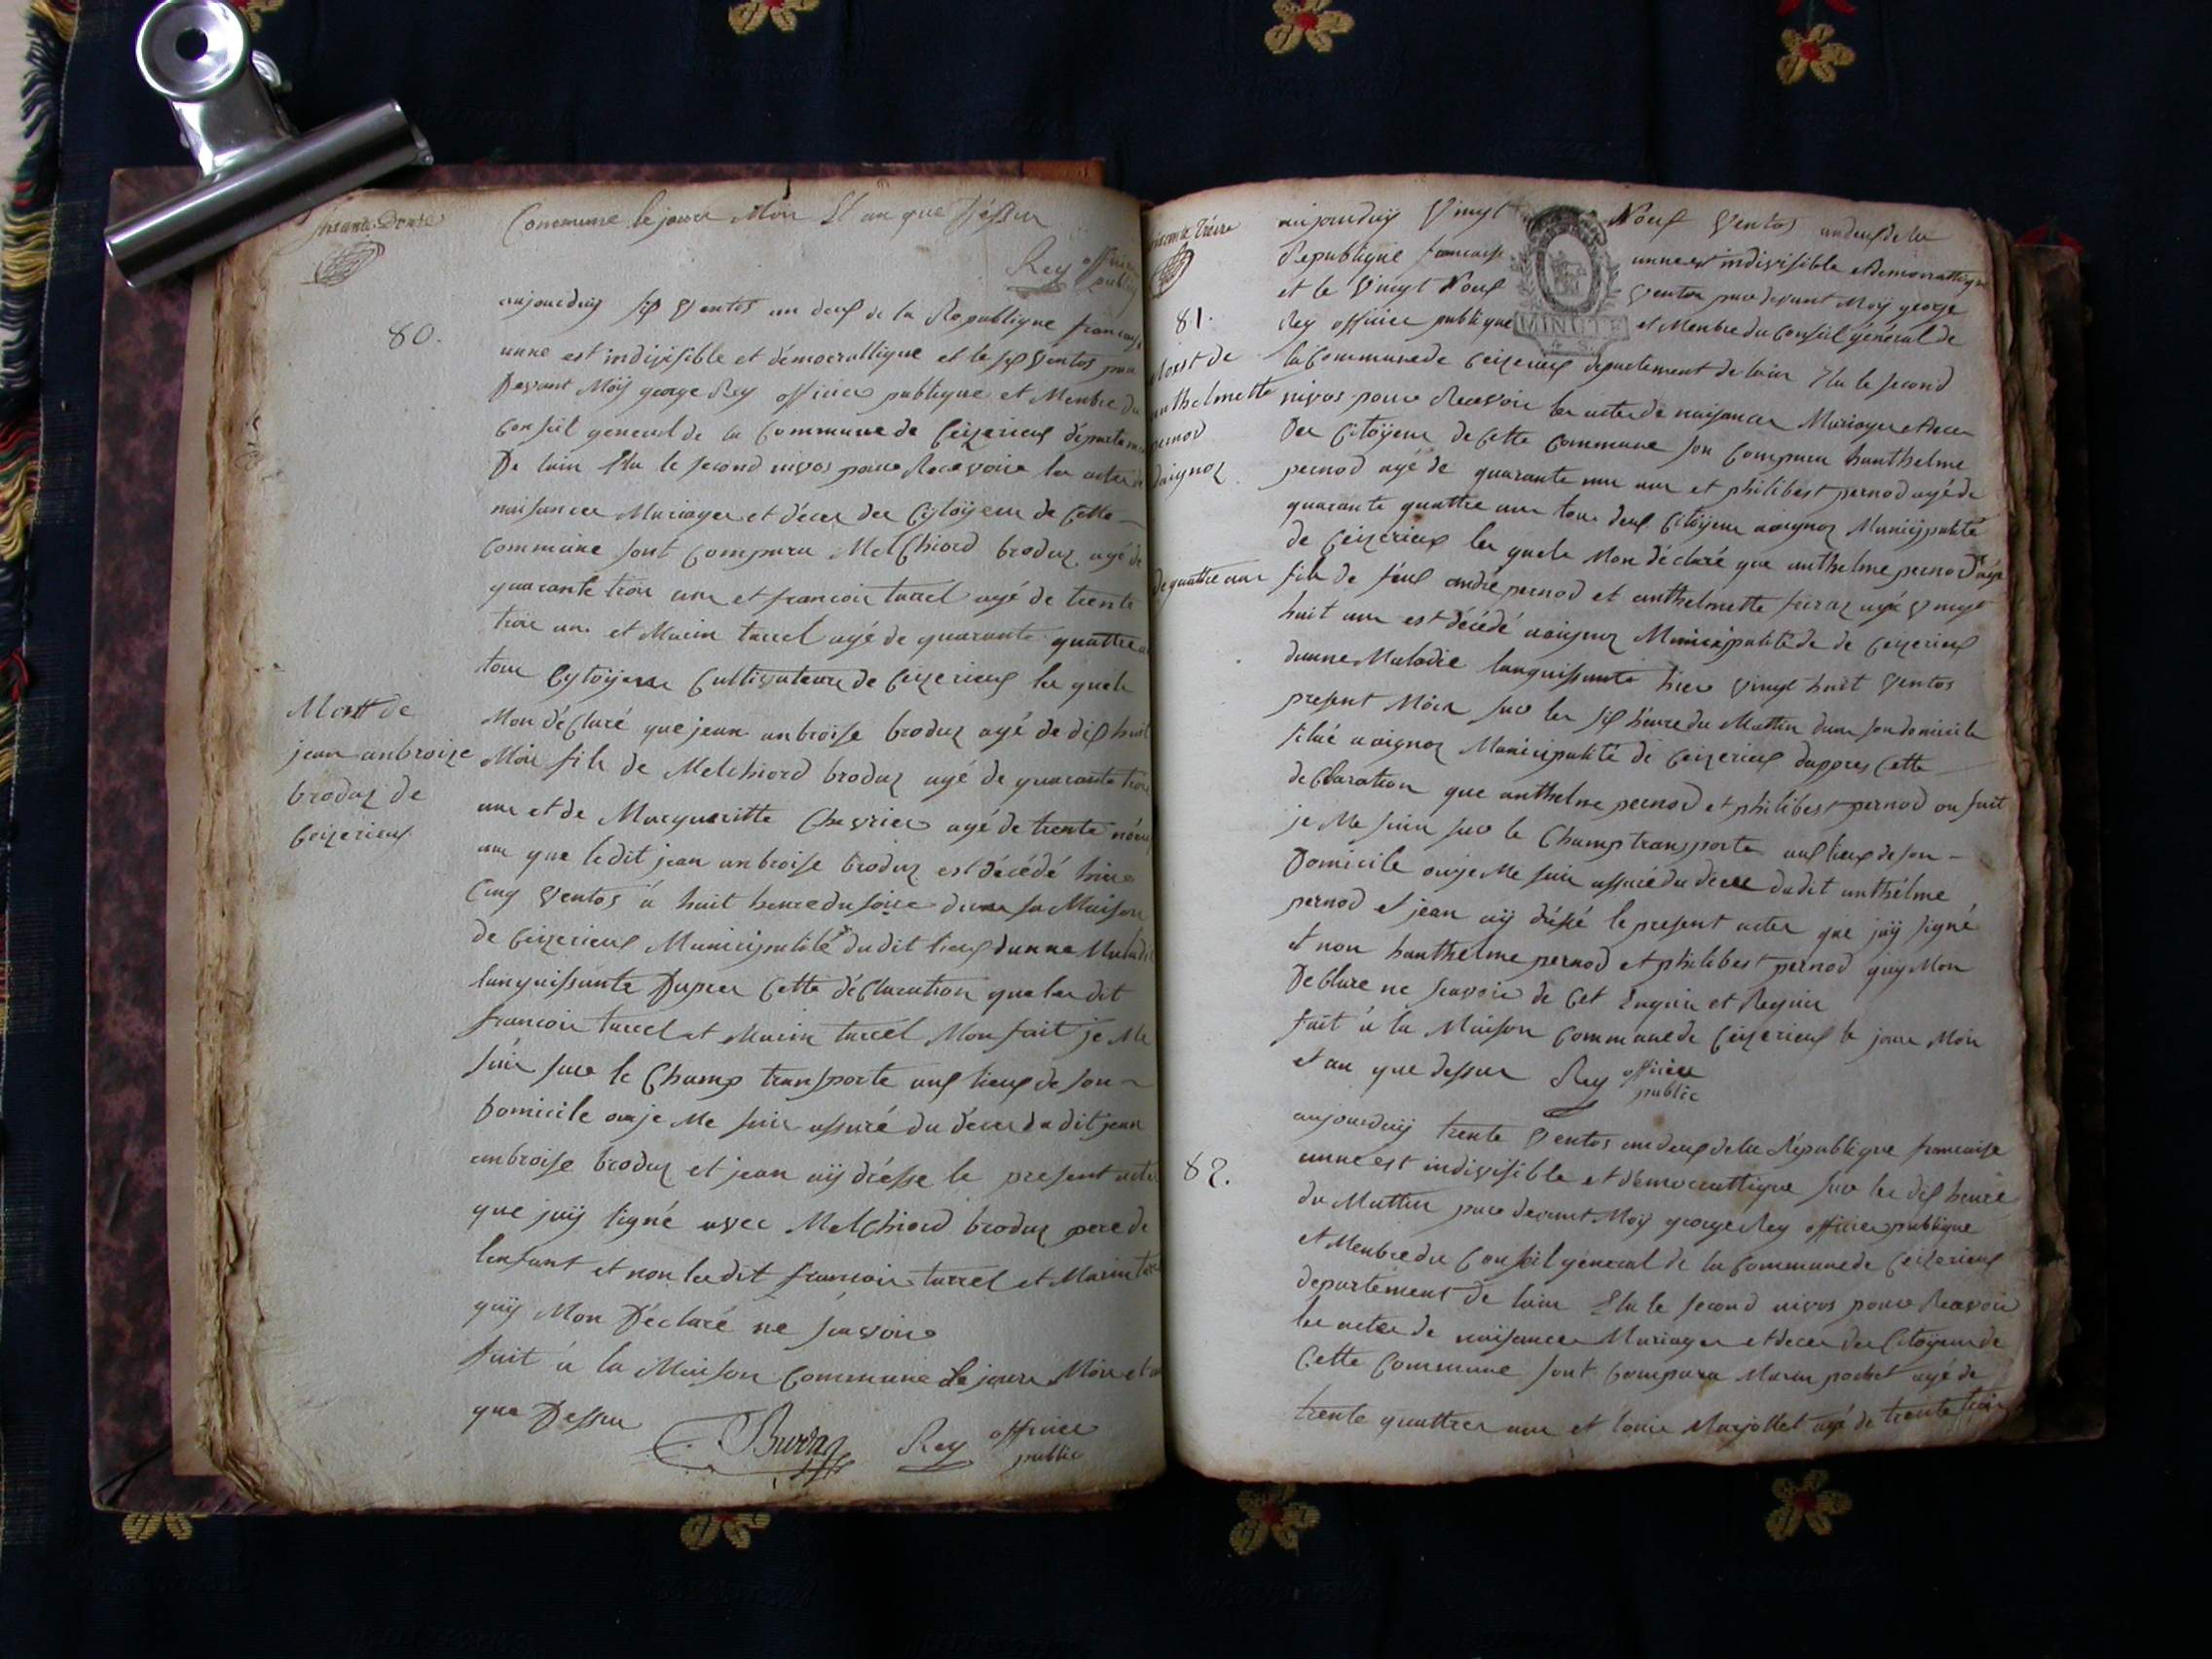 soixante Douze
Commune le jours Moir Et an que Déssur
Rey officier
public
80.
aujourduij six Ventos an deux de la Republique francaise
unne est indivisible et démocrattique et le six Ventos par
Devant Moij george Rey officier publique et Menbre du
Conseil general de la Commune de Ceizerieux départemen
De lain Elu le second nivos pour Recevoire les actes de
naisances Mariages et déces des Cytoÿens de Cette
Commune sont Comparu Melchiord broduz agé de
quarante trois ans et francois turrel agé de trente
trois ans et Marin turrel agé de quarante quattre
tous Cytoÿens Cultivateurs de Ceizerieux les quels
Mort de
jean anbroize
broduz de
Ceizerieux
Mon déClaré que jean anbroise broduz agé de dix huit
Mois fils de Melchiord broduz agé de quarante trois
ans et de Margueritte Chevrier agé de trente
ans que ledit jean anbroise broduz est décédé hier
Cinq Ventos á huit heure du soire dans sa Maison
de Ceizerieux Municipalité dudit lieux dunne Maladi
languissante Dapres Cette déClaration que les dit
francois turrel et Marin turrel Mon fait je Me
suis sur le Champ transporte aux lieux de son
Domicile ou je Me suis assuré du déces du dit jean
anbroise broduz et jean aij drésse le present acte
que jaij signé avec MelChiord broduz pere de
lenfant et non les dit francois turrel et Marin
quij Mon Déclaré ne scavoire
fait á la Maison Commune le jours Mois et
que Dessus
Rey officier
public
soisante Tréize
81.
Mort de
anthelmette
pernod
daignoz
de quattre ans
aujourduij Vingt Neuf Ventos an deux de la
Republique francaise unne est indivisible et democrattique
et le Vingt Neuf Ventos par devant Moij george
Rey officier publique et Menbre du Conseil général de
MINUTE
la Commune de Ceizerieux departement de lain Elu le second
nivos pour Recevoir les actes de naisances Mariages et deces
Des Citoÿens de Cette Commune son Comparu hanthelme
pernod agé de quarante un ans et philibert pernod agé de
quarante quattre ans tous deux Citoÿens aaignoz Municipalité
de Ceizerieux les quels Mon déclaré que anthelme pernod agé
fils de feux andré pernod et anthelmette ferraz agé Vingt
huit ans est décédé aaignoz Municipalité de de Ceizerieux
dunne Maladie languissante hier Vingt huit Ventos
present Mois sur les six héure du Mattin dans son domicile
situé aaignoz Municipalité de Ceizerieux dappres Cette
deClaration que anthelme pernod et philibert pernod on fait
je Me suis sur le Champ transporte aux lieux de son
Domicile ou je Me suis assuré du déces dudit anthélme
pernod et jean aij dréssé le present actes que jaij signé
et non hanthelme pernod et philibert pernod quij Mon
DeClare ne scavoir de Cet Enquis et Requis
fait á la Maison Commune de Ceizerieux le jours Mois
et an que dessus Rey officier
public
82.
aujourduij trente Ventos an deux de la République francaise
unne est indivisible et démocrattique sur les dix heure
du Mattin par devant Moij george Rey officier publique
et Menbre du Conseil géneral de la Commune de Ceizerieux
departement de lain Elu le second nivos pour Recevoir
les actes de naisances Mariages et deces des Citoÿens de
Cette Commune sont Comparu Marin pochet agé de
trente quattres ans et louis Marjollet agé de trente trois